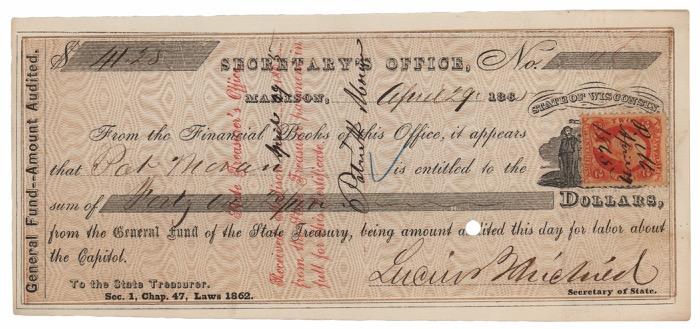 General Fund--Amount Audited.
$ 41.25
SECRETARY'S OFFICE, No.
MADISON, April 29 186
STATE OF WISCONSIN,
From the Financial Books of this Office, it appears
that Pat Moran is entitled to the
sum of Forty one DOLLARS,
from the General Fund of the State Treasury, being amount audited this day for labor about
the Capitol.
To the State Treasurer.
Sec. 1, Chap. 47, Laws 1862.
Secretary of State.
State Treasurer's Office
Received
from the State Treasurer payment in
full for this certificate
Patrick Moran